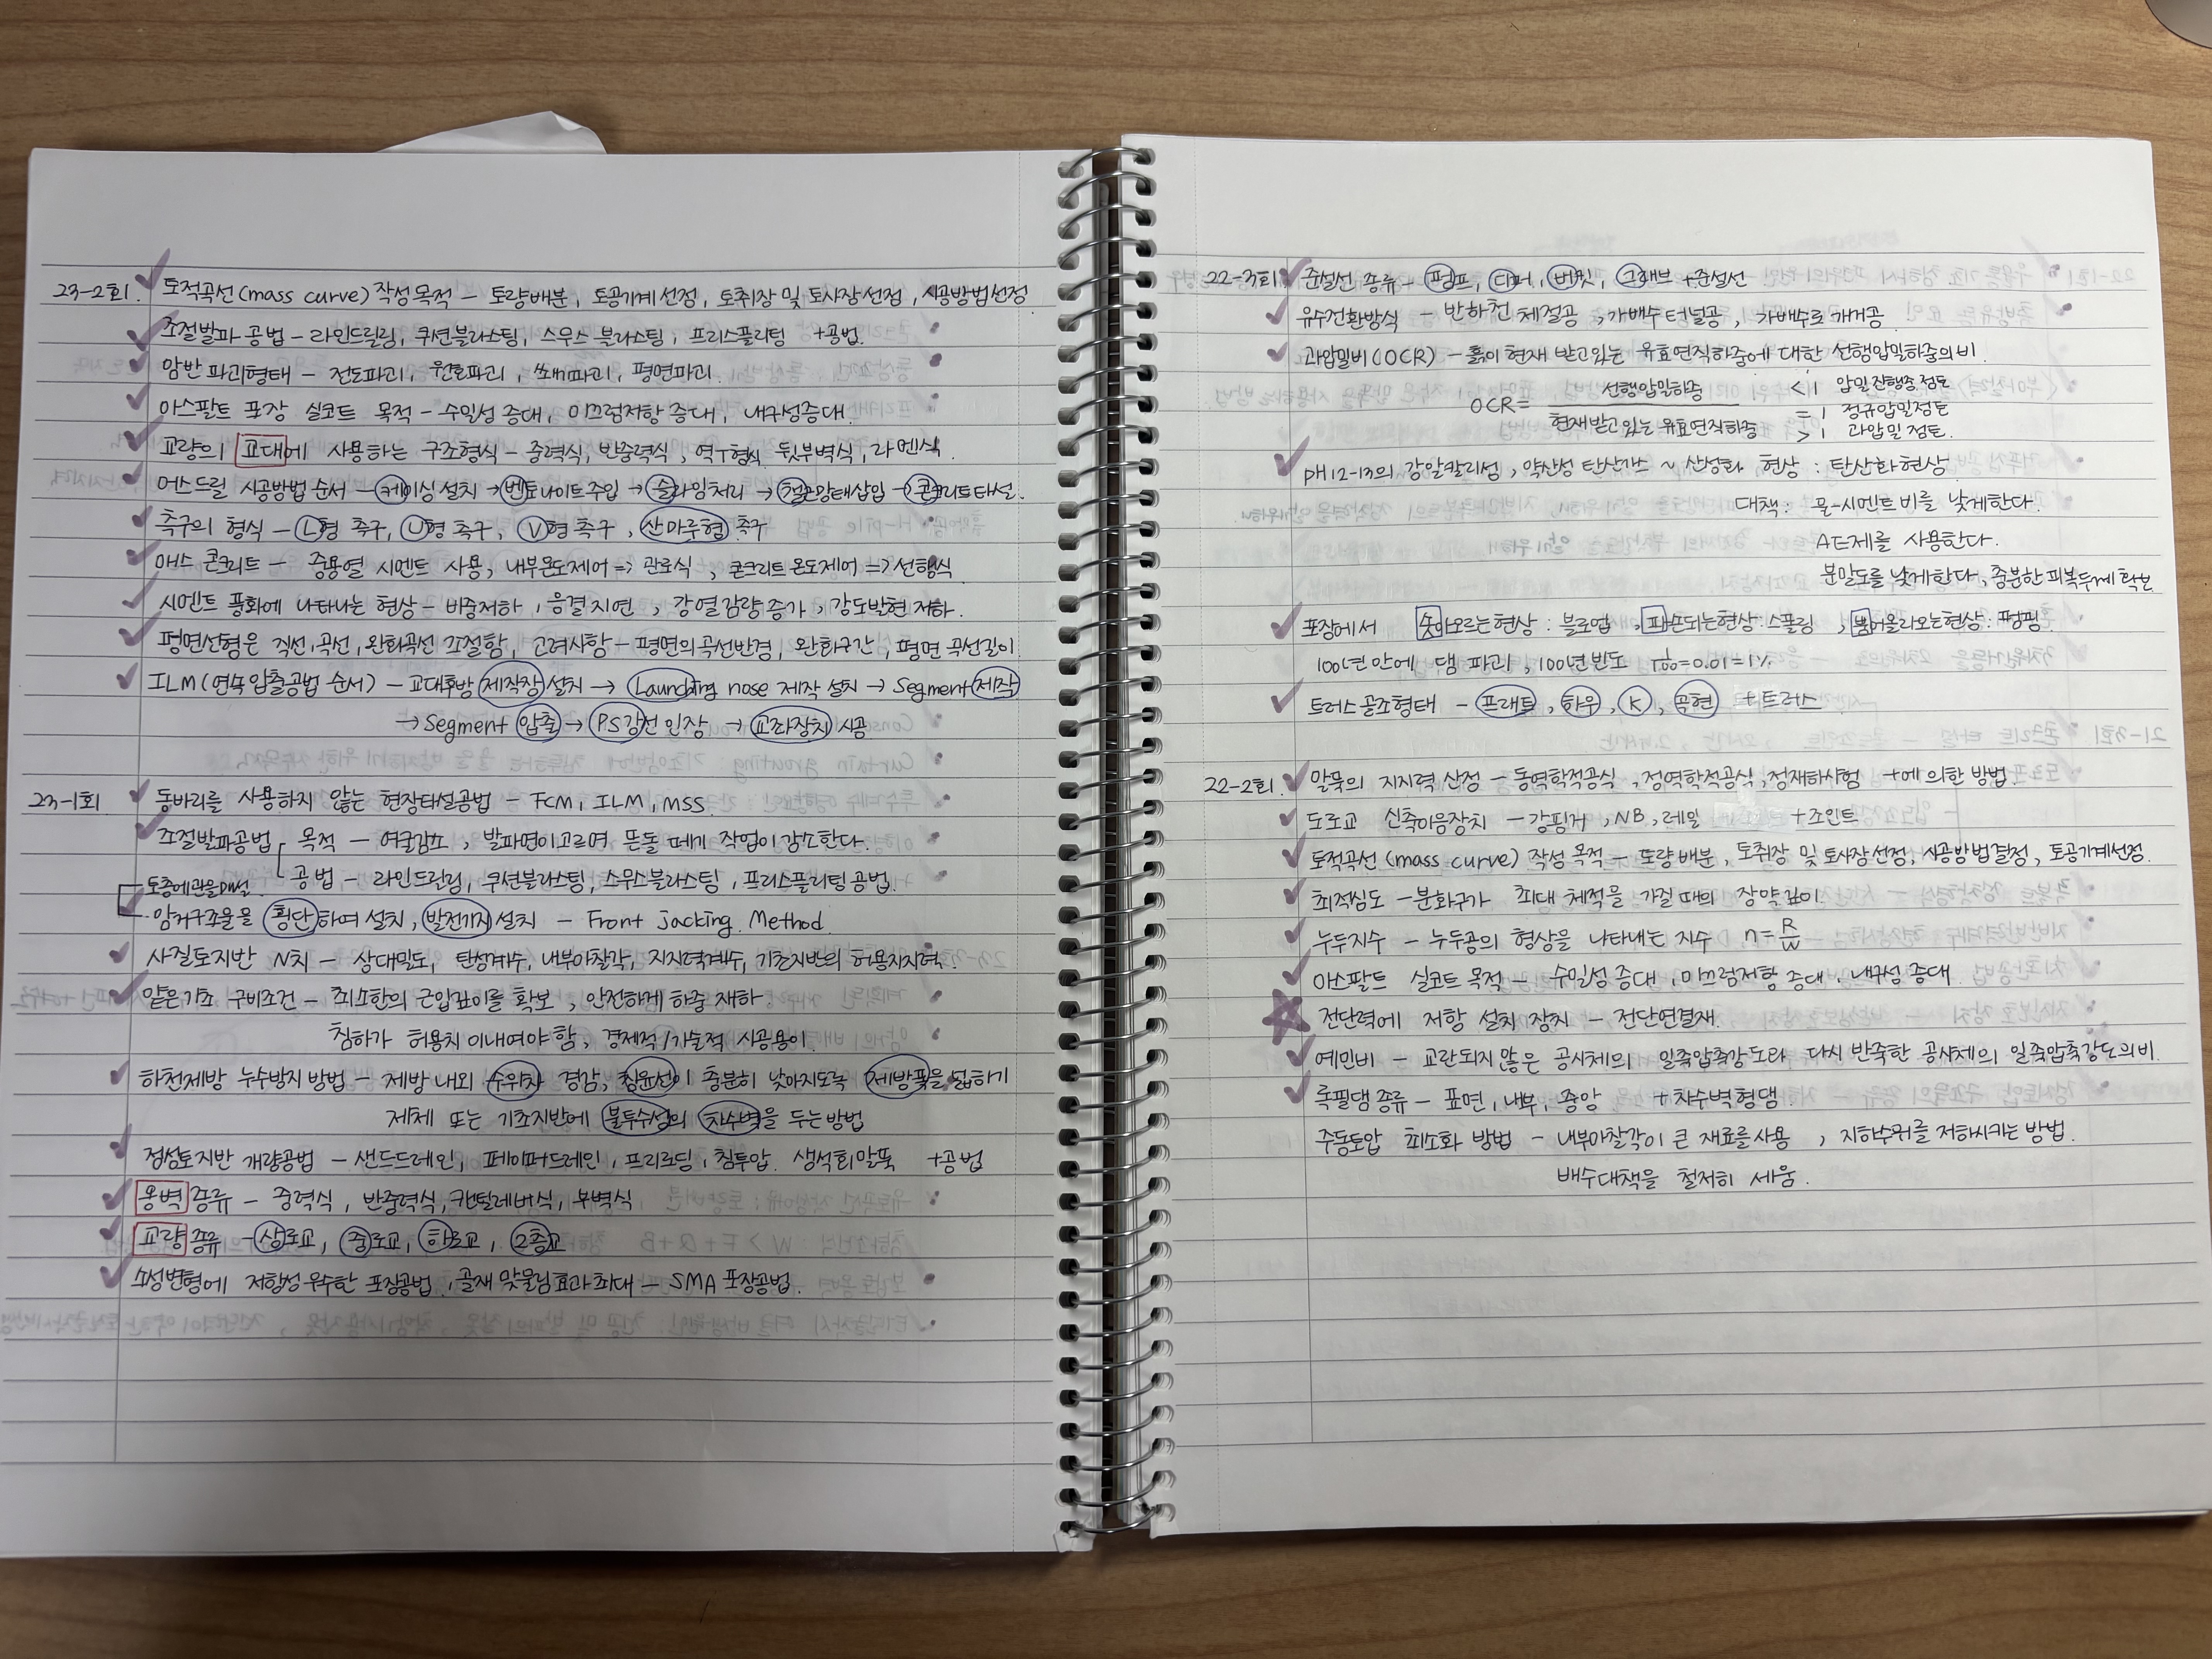 23-2회. 토적곡선(mass curve) 작성목적 - 토량배분, 토공기계선정, 토취장 및 토사장선정, 시공방법선정
조절발파 공법 - 라인드릴링, 쿠션블라스팅, 스무스 블라스팅, 프리스플리팅 +공법.
암반 파괴형태 - 전도파괴, 원호파괴, 쐐기파괴, 평면파괴.
아스팔트 포장 실코트 목적 - 수밀성 증대, 미끄럼저항 증대, 내구성증대.
교량의 교대에 사용하는 구조형식 - 중력식, 반중력식, 역T형식, 뒷부벽식, 라멘식.
어스드릴 시공방법 순서 - 케이싱 설치 → 벤토나이트주입 → 슬라임처리 → 철근망태삽입 → 콘크리트타설.
측구의 형식 - L형 측구, U형 측구, V형 측구, 산마루형 측구
매스 콘크리트 - 중용열 시멘트 사용, 내부온도제어 => 관로식, 콘크리트온도제어 => 선행식
시멘트 풍화에 나타나는 현상 - 비중저하, 응결지연, 강열감량증가, 강도발현 저하.
평면선형은 직선, 곡선, 완화곡선 조절함, 고려사항 - 평면의곡선반경, 완화구간, 평면 곡선길이
ILM(연속압출공법 순서) - 교대후방 제작장 설치 → Launching nose 제작 설치 → Segment 제작
→ Segment 압출 → P.S 강선 인장 → 교좌장치 시공
23-1회 동바리를 사용하지 않는 현장타설공법 - FCM, ILM, MSS.
조절발파공법 목적 - 여굴감소, 발파면이고르며 뜬돌 떼기 작업이 감소한다.
공법 - 라인드릴링, 쿠션블라스팅, 스무스블라스팅, 프리스플리팅 공법.
토층에관을
암거구조물을 횡단하며 설치, 발전기지 설치 - Front jacking Method.
사질토지반 N치 - 상대밀도, 탄성계수, 내부마찰각, 지지력계수, 기초지반의 허용지지력.
얕은기초 구비조건 - 최소한의 근입깊이를 확보, 안전하게 하중 재하
침하가 허용치 이내여야 함, 경제적/기술적 시공용이.
하천제방 누수방지 방법 - 제방 내외 수위차 경감, 침윤선이 충분히 낮아지도록 제방폭을 넓히기
제체 또는 기초지반에 불투수성의 차수벽을 두는 방법
점성토지반 개량공법 - 샌드드레인, 페이퍼드레인, 프리로딩, 침투압. 생석회말뚝 +공법
옹벽 종류 - 중력식, 반중력식, 캔틸레버식, 부벽식
교량 종류 - 상로교, 중로교, 하로교, 2층교
소성변형에 저항성 우수한 포장공법, 골재 맞물림효과최대 - SMA 포장공법.
22-3회 준설선 종류 - 펌프, 디퍼, 버킷, 그래브 +준설선
유수전환방식 - 반하천 체절공, 가배수터널공, 가배수로 개거공
과압밀비(OCR) - 흙이 현재 받고있는 유효연직하중에 대한 선행압밀하중의 비.
OCR = 선행압밀하중 / 현재받고있는 유효연직하중
< 1 압밀진행중 점토
= 1 정규압밀점토
> 1 과압밀 점토.
pH 12-13의 강알칼리성, 약산성 탄산가스 ~ 산성화 현상 : 탄산화현상
대책 : 물-시멘트 비를 낮게한다.
AE제를 사용한다.
분말도를 낮게한다, 충분한 피복두께 확보
포장에서 솟아오르는현상 : 블로업, 파손되는현상 : 스폴링, 뿜어올라오는현상 : 펌핑.
100년 안에 댐 파괴, 100년 빈도 1/100 = 0.01 = 1%
트러스 골조형태 - 프래트, 하우, K, 곡현 +트러스
22-2회. 말뚝의 지지력 산정 - 동역학적공식, 정역학적공식, 정재하시험 +에 의한 방법.
도로교 신축이음장치 - 강핑거, NB, 레일 +조인트
토적곡선(mass curve) 작성 목적 - 토량배분, 토취장 및 토사장선정, 시공방법 결정, 토공기계선정.
최적심도 - 분화구가 최대 체적을 가질 때의 장약깊이
누두지수 - 누두공의 형상을 나타내는 지수 n = R/W
아스팔트 실코트 목적 - 수밀성 증대, 미끄럼저항 증대, 내구성 증대
전단력에 저항 설치 장치 - 전단연결재.
예민비 - 교란되지 않은 공시체의 일축압축강도와 다시 반죽한 공시체의 일축압축강도의 비.
록필댐 종류 - 표면, 내부, 중앙 +차수벽형댐.
주동토압 최소화 방법 - 내부마찰각이 큰 재료를 사용, 지하수위를 저하시키는 방법.
배수대책을 철저히 세움.